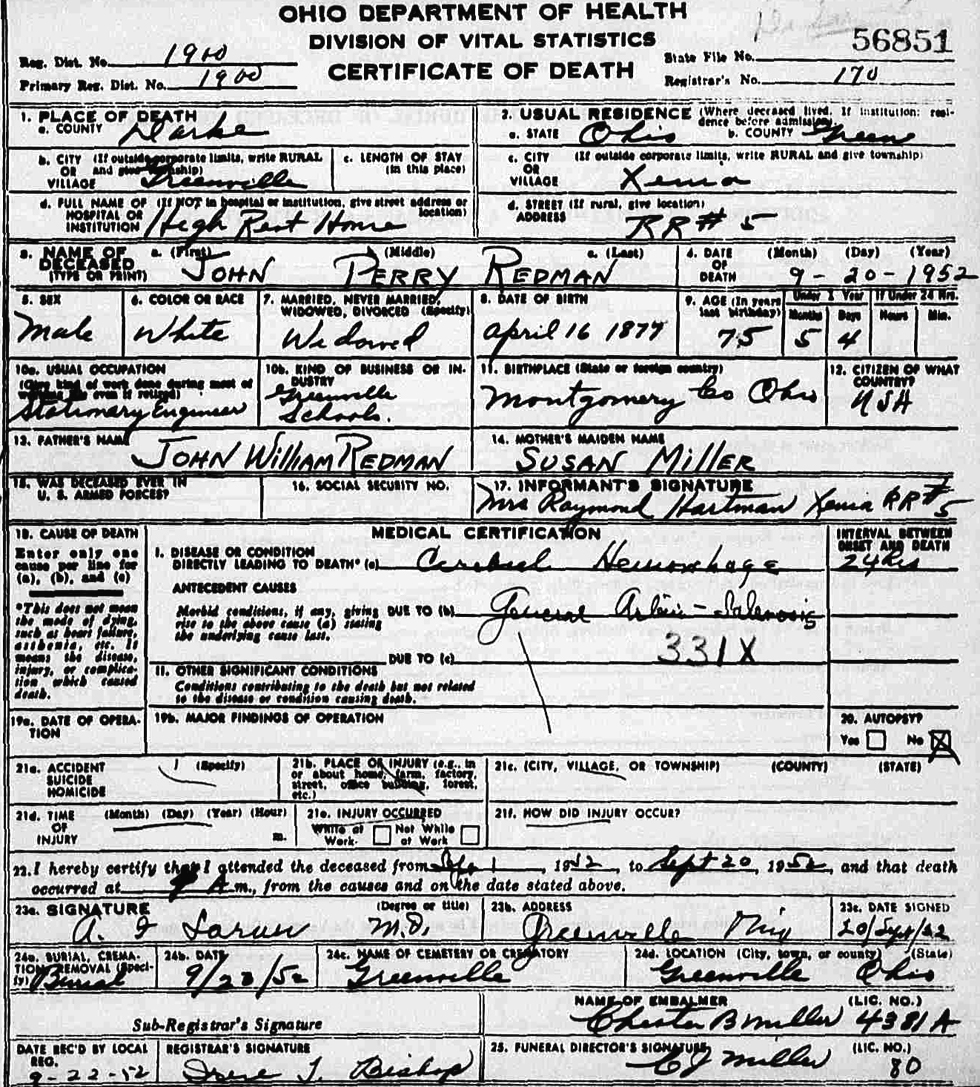 OHIO DEPARTMENT OF HEALTH
DIVISION OF VITAL STATISTICS
CERTIFICATE OF DEATH
Reg. Dist. No. 1900
Primary Reg. Dist. No. 1900
State File No. 56851
Registrar's No. 170
1. PLACE OF DEATH
a. COUNTY Darke
2. USUAL RESIDENCE (Where deceased lived. If institution: residence before admission)
a. STATE Ohio b. COUNTY Greene
b. CITY (If outside corporate limits, write RURAL
OR and give township)
VILLAGE Greenville
c. LENGTH OF STAY
(in this place)
c. CITY (If outside corporate limits, write RURAL and give township)
OR
VILLAGE Xenia
d. FULL NAME OF (If NOT in hospital or institution, give street address or
HOSPITAL OR location)
INSTITUTION High Rest Home
d. STREET (If rural, give location)
ADDRESS RR# 5
3. NAME OF a. (First) (Middle) c. (Last)
DECEASED
(TYPE OR PRINT) JOHN PERRY REDMAN
4. DATE (Month) (Day) (Year)
OF
DEATH 9-20-1952
5. SEX
Male
6. COLOR OR RACE
White
7. MARRIED, NEVER MARRIED,
WIDOWED, DIVORCED (Specify)
Widowed
8. DATE OF BIRTH
april 16 1877
9. AGE (In years
last birthday)
75
Under 1 Year
Months Days
5 4
If Under 24 Hrs.
Hours Min.
10a. USUAL OCCUPATION
(Give kind of work done during most of
working life even if retired)
Stationary Engineer
10b. KIND OF BUSINESS OR IN-
DUSTRY
Greenville
Schools.
11. BIRTHPLACE (State or foreign country)
Montgomery Co Ohio
12. CITIZEN OF WHAT
COUNTRY?
USA
13. FATHER'S NAME
JOHN WILLIAM REDMAN
14. MOTHER'S MAIDEN NAME
SUSAN MILLER
15. WAS DECEASED EVER IN
U. S. ARMED FORCES?
16. SOCIAL SECURITY NO.
17. INFORMANT'S SIGNATURE
Mrs Raymond Hartman Xenia RR# 5
18. CAUSE OF DEATH
Enter only one
cause per line for
(a), (b), and (c)
*This does not mean
the mode of dying,
such as heart failure,
asthenia, etc. It
means the disease,
injury, or complica-
tion which caused
death.
MEDICAL CERTIFICATION
I. DISEASE OR CONDITION
DIRECTLY LEADING TO DEATH* (a) Cerebral Hemorrhage
INTERVAL BETWEEN
ONSET AND DEATH
24 hrs
ANTECEDENT CAUSES
Morbid conditions, if any, giving
rise to the above cause (a) stating
the underlying cause last.
DUE TO (b) General Arterio-Sclerosis
DUE TO (c)
331X
II. OTHER SIGNIFICANT CONDITIONS
Conditions contributing to the death but not related
to the disease or condition causing death.
19a. DATE OF OPERA-
TION
19b. MAJOR FINDINGS OF OPERATION
20. AUTOPSY?
Yes No X
21a. ACCIDENT (Specify)
SUICIDE
HOMICIDE
21b. PLACE OF INJURY (e.g., in
or about home, farm, factory,
street, office building, forest,
etc.)
21c. (CITY, VILLAGE, OR TOWNSHIP) (COUNTY) (STATE)
21d. TIME (Month) (Day) (Year) (Hour)
OF
INJURY m.
21e. INJURY OCCURRED
While at Work Not While at Work
21f. HOW DID INJURY OCCUR?
22. I hereby certify that I attended the deceased from 1, 1952, to Sept 20, 1952, and that death
occurred at 9 A m., from the causes and on the date stated above.
23a. SIGNATURE (Degree or title)
M.D.
23b. ADDRESS
Greenville Ohio
23c. DATE SIGNED
20/Sept/52
24a. BURIAL, CREMA-
TION, REMOVAL (Speci-
fy) Burial
24b. DATE
9/23/52
24c. NAME OF CEMETERY OR CREMATORY
Greenville
24d. LOCATION (City, town, or county) (State)
Greenville Ohio
Sub-Registrar's Signature
NAME OF EMBALMER (LIC. NO.)
Chester B Miller 4381 A
DATE REC'D BY LOCAL
REG.
9-22-52
REGISTRAR'S SIGNATURE
Irene T. Bishop
25. FUNERAL DIRECTOR'S SIGNATURE (LIC. NO.)
CJ Miller 80